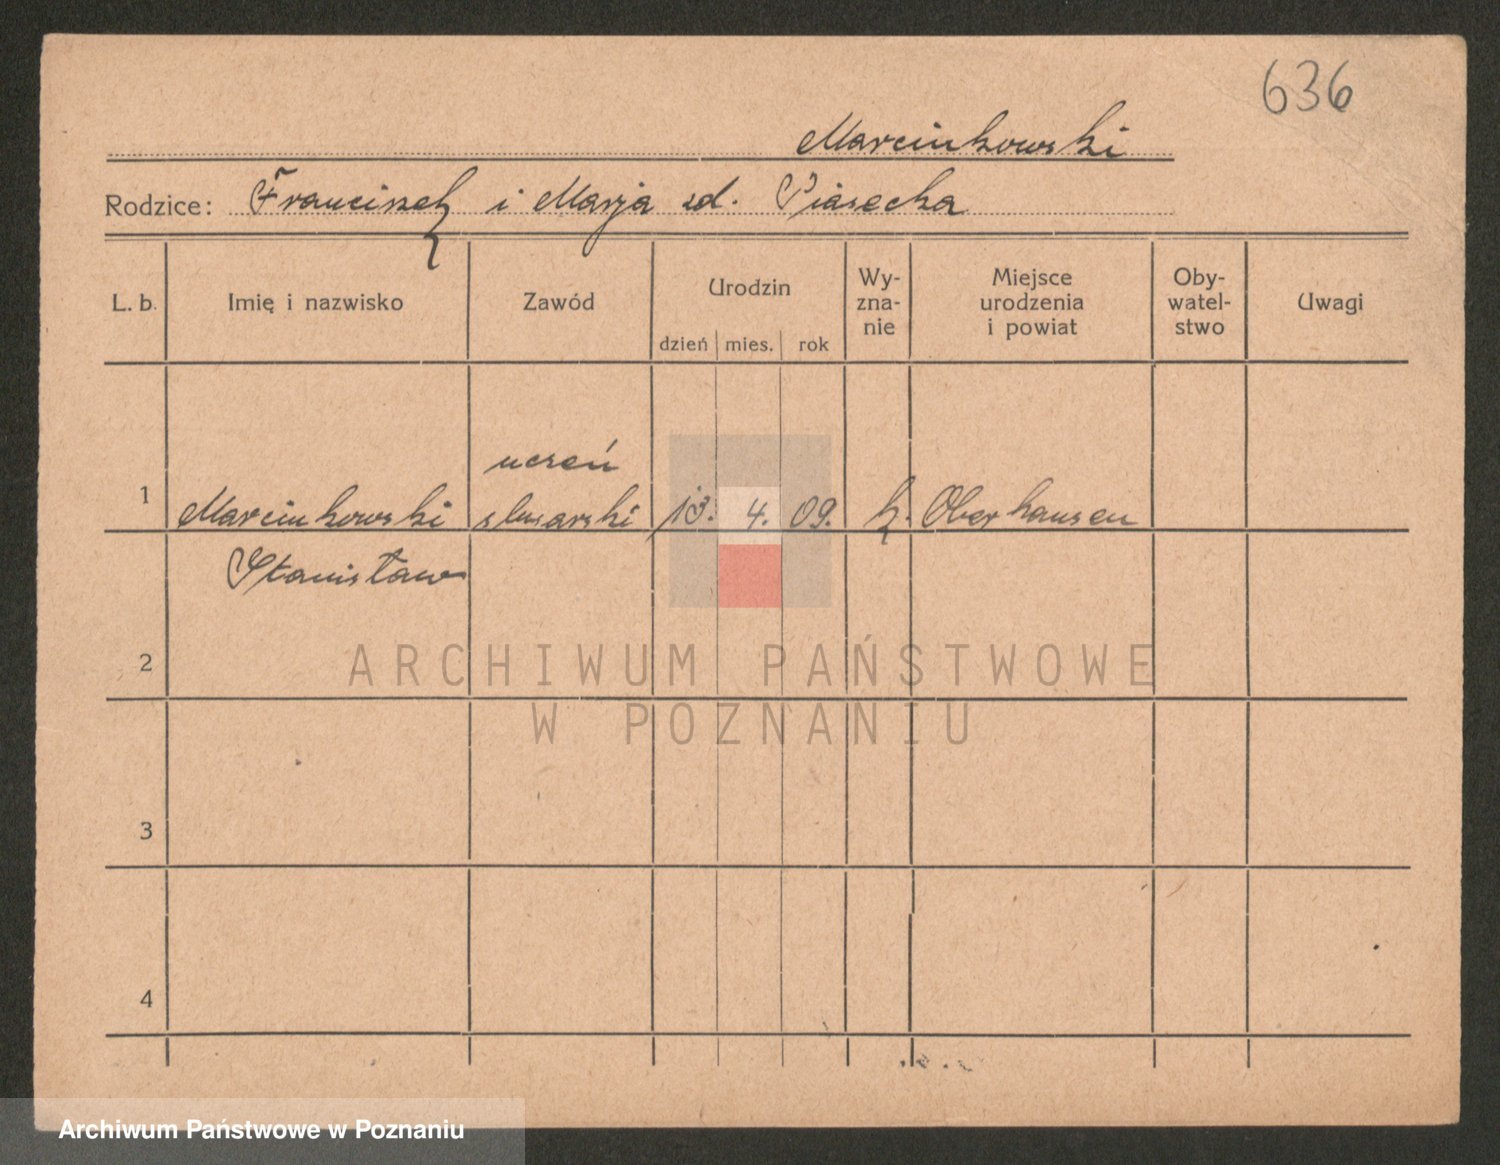 636
Marcinkowski
Rodzice: Franciszek i Marja zd. Piasecka
L. b. Imię i nazwisko Zawód Urodzin dzień mies. rok Wy-zna-nie Miejsce urodzenia i powiat Oby-watel-stwo Uwagi
uczeń
1 Marcinkowski slusarski 13. 4. 09. k. Oberhausen
Stanisław
2
ARCHIWUM PAŃSTWOWE
W POZNANIU
3
4
Archiwum Państwowe w Poznaniu